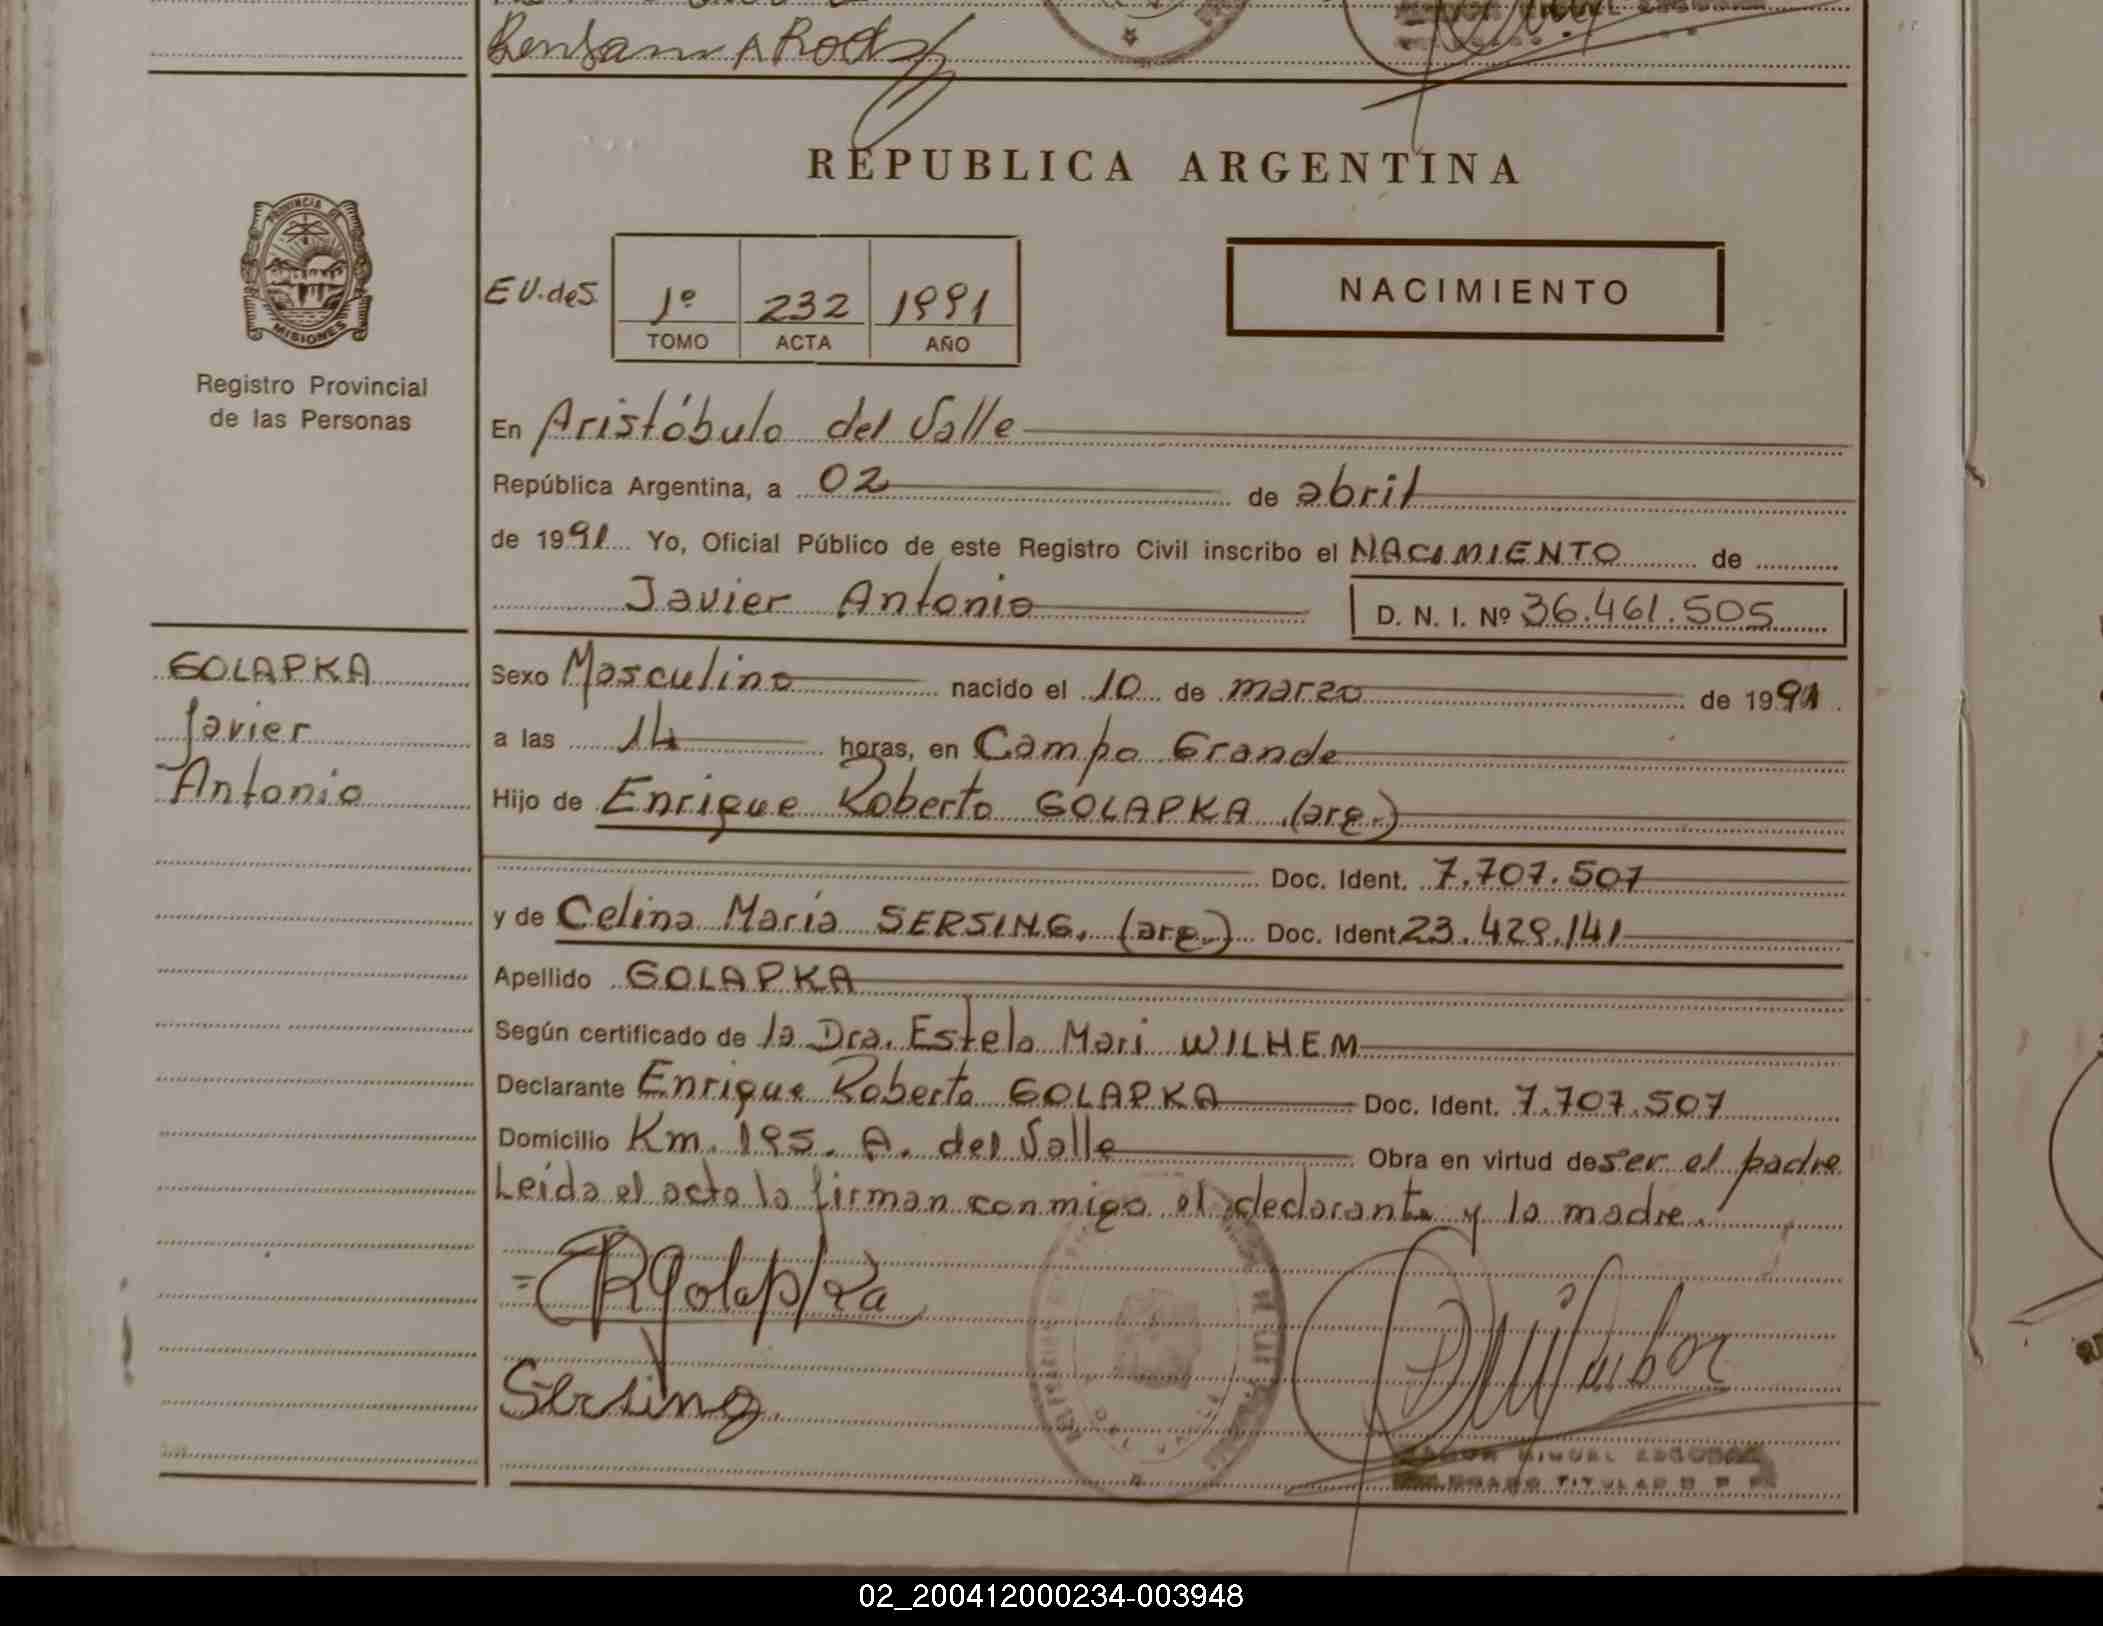 REPUBLICA ARGENTINA
PROVINCIA DE
MISIONES
Registro Provincial
de las Personas
E V. deS. 1º 232 1991
TOMO ACTA AÑO
NACIMIENTO
En Aristóbulo del Valle
República Argentina, a 02 de abril
de 1991 Yo, Oficial Público de este Registro Civil inscribo el NACIMIENTO de
Javier Antonio D. N. I. Nº 36.461.505
GOLAPKA
Javier
Antonio
Sexo Masculino nacido el 10 de marzo de 1991
a las 14 horas, en Campo Grande
Hijo de Enrique Roberto GOLAPKA (arg.)
Doc. Ident. 7.707.507
y de Celina María SERSING. (arg.) Doc. Ident. 23.429.141
Apellido GOLAPKA
Según certificado de la Dra. Estela Mari WILHEM
Declarante Enrique Roberto GOLAPKA Doc. Ident. 7.707.507
Domicilio Km. 195. A. del Valle Obra en virtud de ser el padre
Leída el acta la firman conmigo el declarante y la madre.
Golapka
Sersing
MIGUEL ESCOBAR
TITULAR
02_200412000234-003948